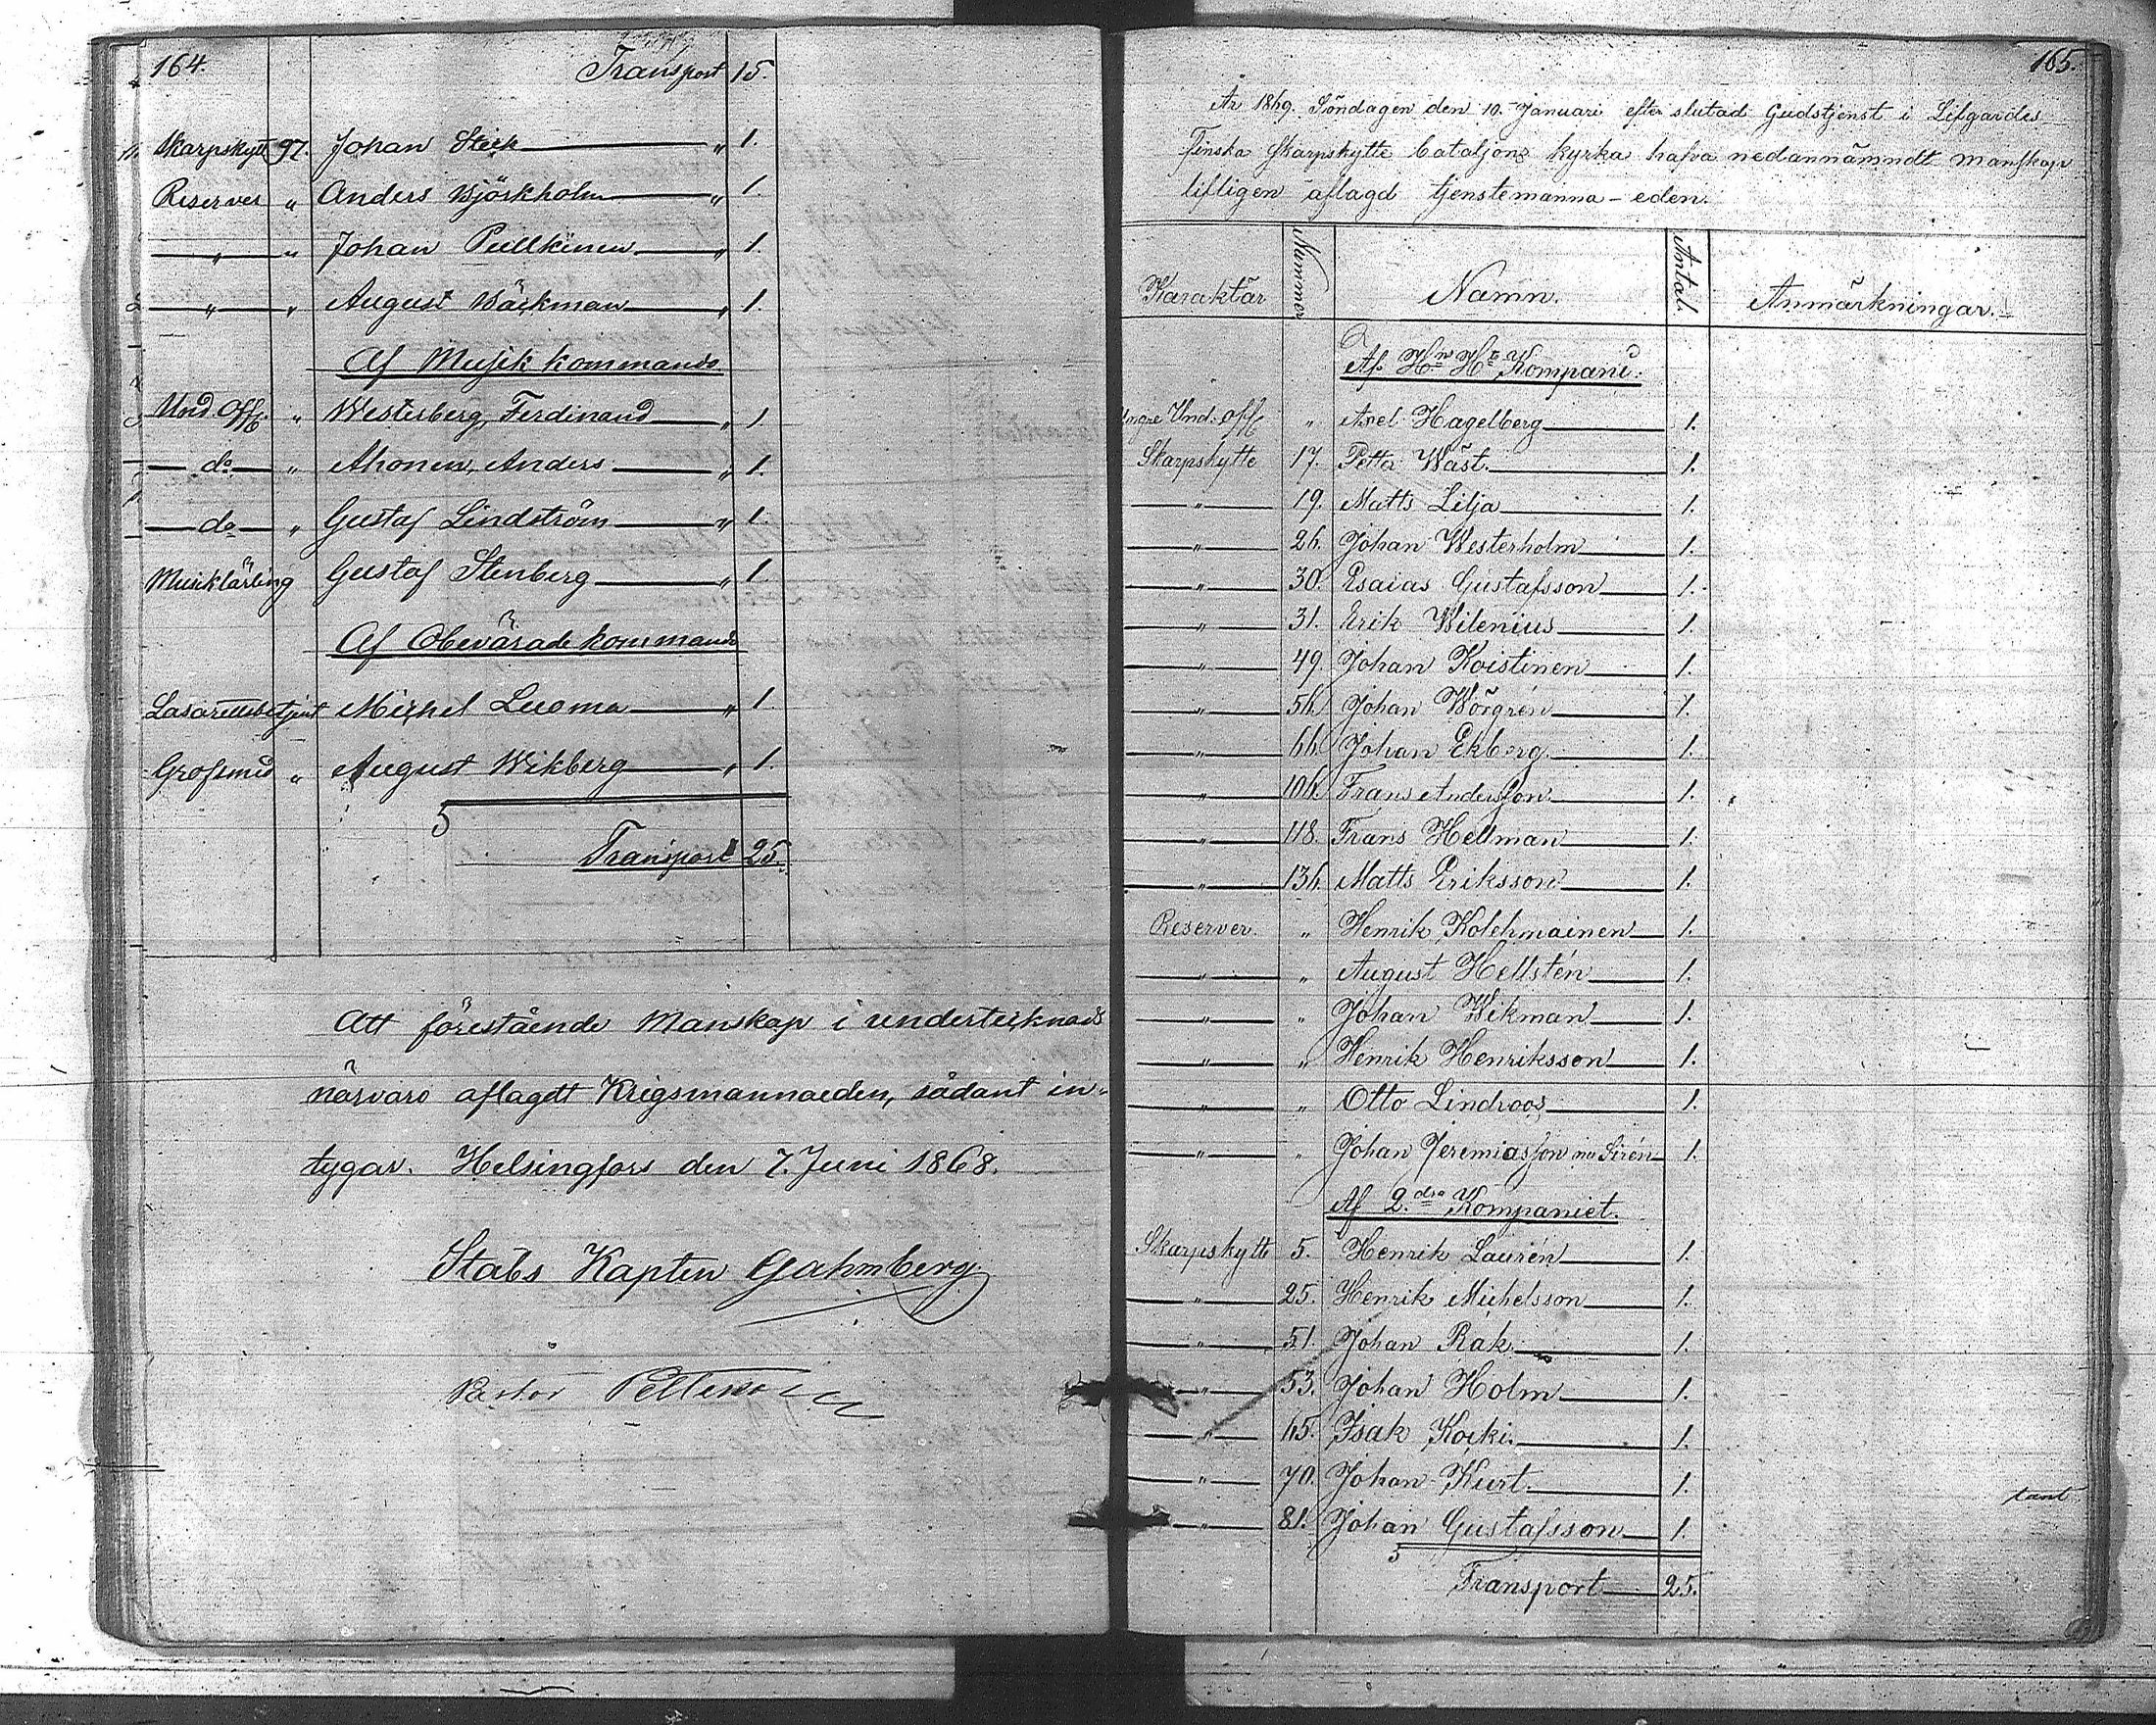 164.
Transport 15.
Skarpskytt 97. Johan Steck " 1.
Reserver " Anders Björkholm " 1.
" " Johan Pullkinen " 1.
" " August Bäckman " 1.
Af Musik kommando
Und. Off. " Westerberg, Ferdinand " 1.
do " Ahonen, Anders " 1.
do " Gustaf Lindström " 1.
Musiklärling Gustaf Stenberg " 1.
Af Obevärade kommando
Lasarettsbetjent Michel Luoma " 1.
Grofsmed " August Wikberg " 1.
5
Transport 25.
Att förestående Manskap i undertecknads
närvaro aflagdt Krigsmannaeden, sådant in-
tygar. Helsingfors den 7. Juni 1868.
Stabs Kapten Gahmberg.
Pastor
165.
År 1869. Söndagen den 10. Januari efter slutad Gudstjenst i Lifgardes
Finska Skarpskytte bataljons kyrka hafva nedannämndt manskap
lifligen aflagd tjenstemanna-eden.
Karaktär Nummer Namn. Antal. Anmärkningar.
Af Hns Hts Kompani.
Yngre Und: off " Axel Hagelberg 1.
Skarpskytte 17. Petter Wäst. 1.
" 19. Matts Lilja 1.
" 26. Johan Westerholm 1.
" 30. Esaias Gustafsson 1.
" 31. Erik Wilenius 1.
" 49. Johan Koistinen 1.
" 56. Johan Wörgrén 1.
" 66. Johan Ekberg. 1.
" 106. Frans Andersson. 1.
" 118. Frans Hellman 1.
" 136. Matts Eriksson 1.
Reserver. " Henrik Kolehmainen 1.
" " August Hellstén 1.
" " Johan Wikman 1.
" " Henrik Henriksson 1.
" " Otto Lindroos 1.
" " Johan Jeremiasson nu Sirén 1.
Af 2.dra Kompaniet.
Skarpskytte 5. Henrik Laurén 1.
" 25. Henrik Michelsson 1.
" 51. Johan Rak. 1.
" 53. Johan Holm 1.
" 65. Isak Koski. 1.
" 70. Johan Kurt. 1.
" 81. Johan Gustafsson 1.
5
Transport 25.